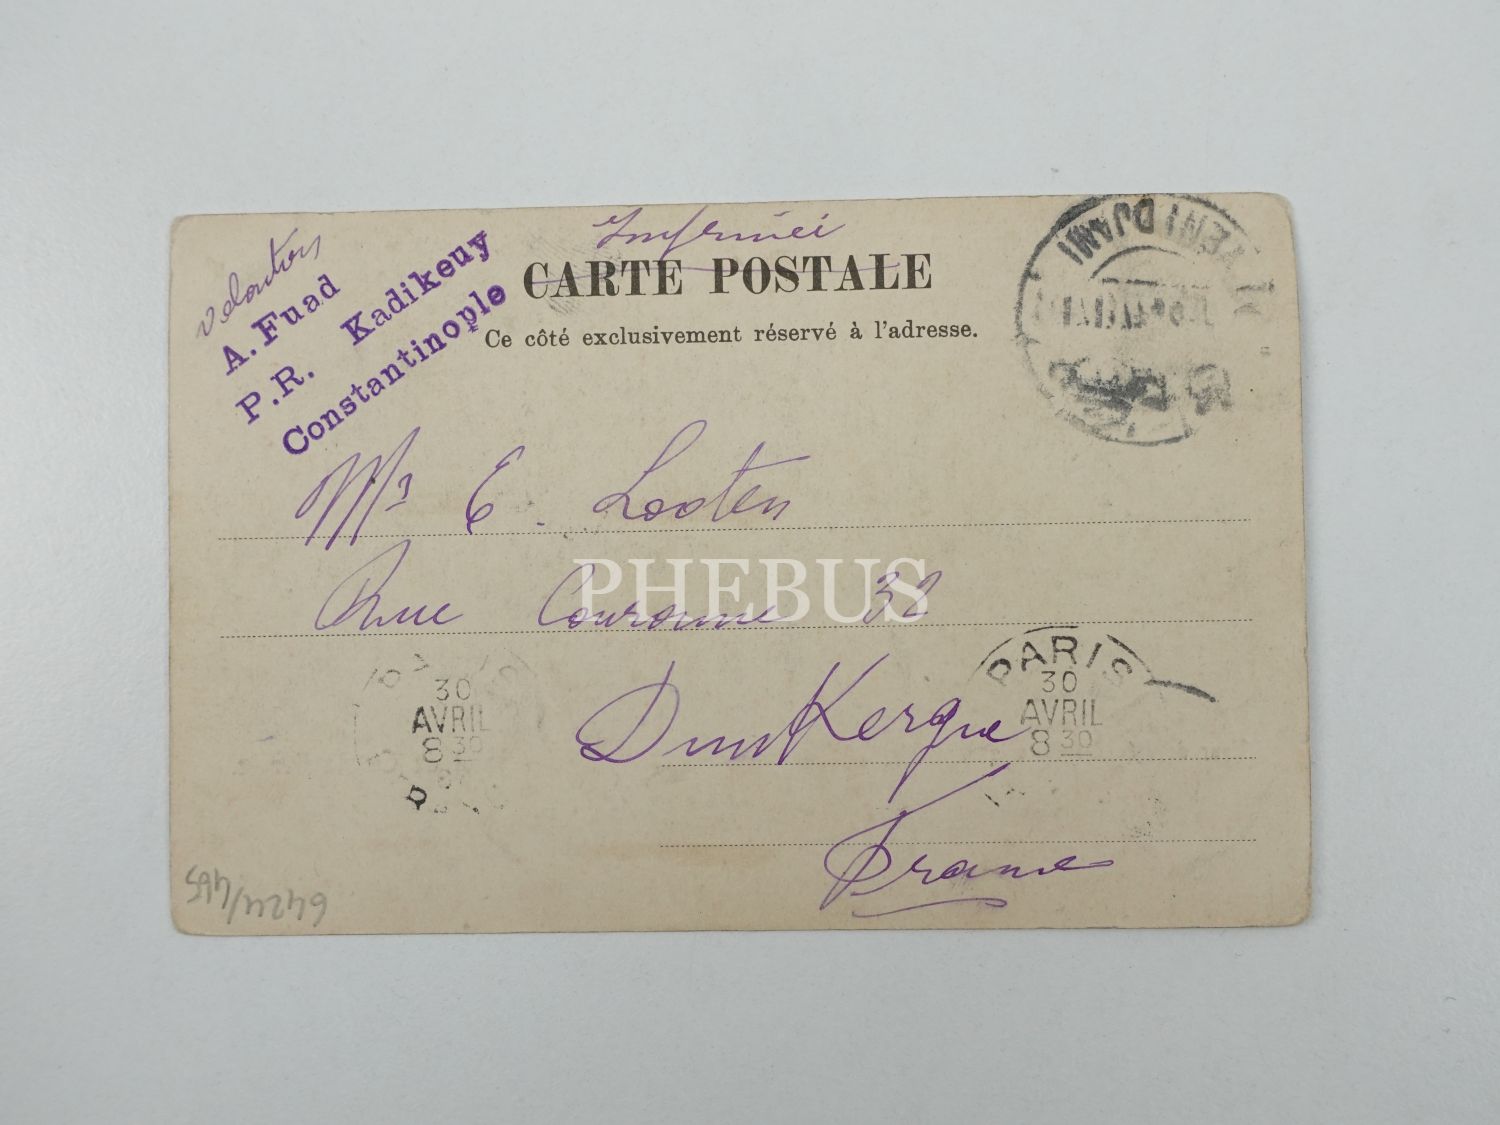 Imprimé
CARTE POSTALE
Ce côté exclusivement réservé à l'adresse.
A. Fuad
P.R. Kadikeuy
Constantinople
YENI DJAMI
Mr E. Looten
Rue Couronne 32
DunKerque
France
PARIS
30
AVRIL
8 30
PARIS
30
AVRIL
8 30
PHEBUS